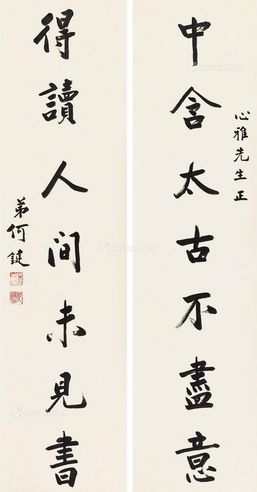 心雅先生正
中含太古不盡意
得讀人间未見書
弟何鍵